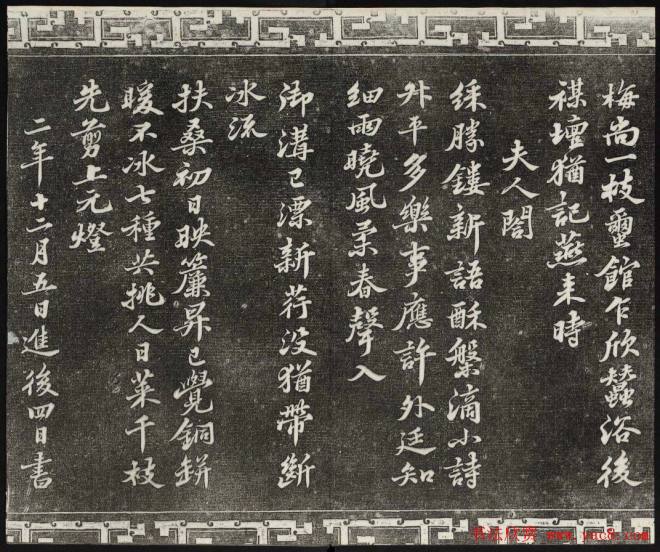 梅尚一枝蠒館乍欣蠶浴後
禖壇猶記燕来時
夫人閤
綵勝鏤新語酥盤滴小詩
升平多樂事應許外廷知
細雨曉風柔春聲入
御溝已漂新荇没猶帶斷
冰流
扶桑初日映簾昇已覺銅缾
暖不冰七種共挑人日菜千枝
先剪上元燈
二年十二月五日進後四日書
书法欣赏 www.yac8.com